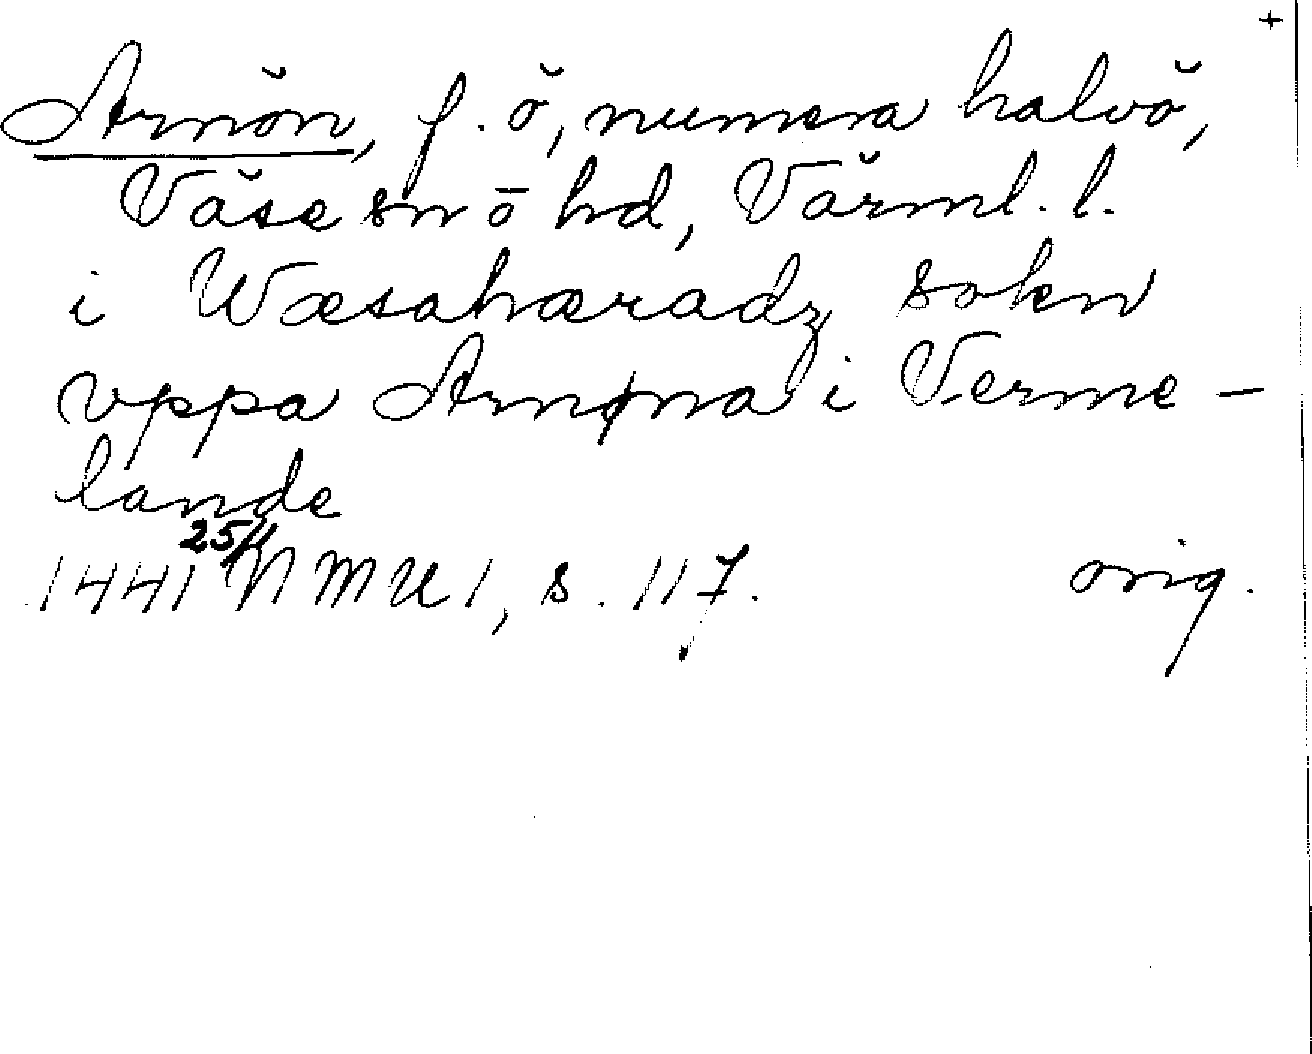 +
Arnön, f. ö, numera halvö,
Väse sn o hd, Värml. l.
i Wæsahæradz sokn
vppa Arnøna i Verme-
lande
1441 25/1 NMU 1, s. 117. orig.